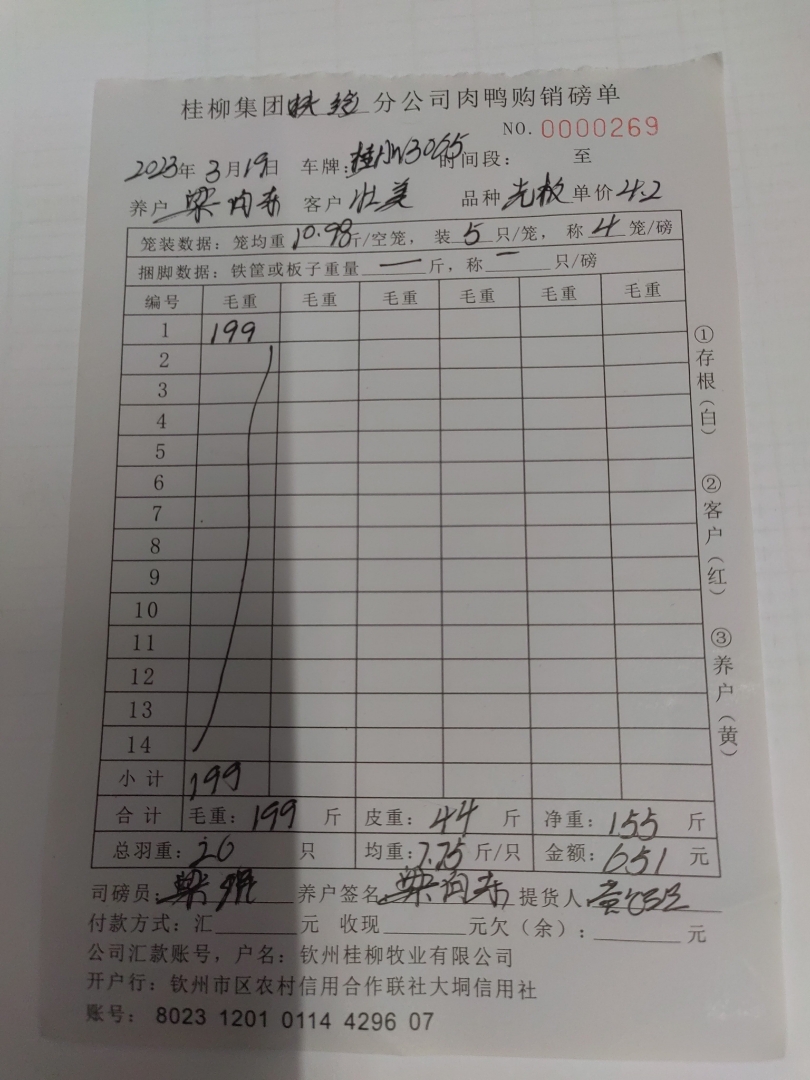 桂柳集团 分公司肉鸭购销磅单
NO. 0000269
2023年3月19日 车牌:桂 3065 时间段: 至
养户 梁 客户 壮美 品种 光板 单价 4.2
笼装数据:笼均重 10.98 斤/空笼, 装 5 只/笼, 称 4 笼/磅
捆脚数据:铁筐或板子重量 — 斤,称 — 只/磅
编号 毛重 毛重 毛重 毛重 毛重 毛重
1 199
2
3
4
5
6
7
8
9
10
11
12
13
14
小计 199
合计 毛重: 199 斤 皮重: 44 斤 净重: 155 斤
总羽重: 20 只 均重: 7.75 斤/只 金额: 651 元
司磅员: 梁 养户签名 梁 提货人
付款方式:汇 元 收现 元欠(余): 元
公司汇款账号,户名:钦州桂柳牧业有限公司
开户行:钦州市区农村信用合作联社大垌信用社
账号: 8023 1201 0114 4296 07
①存根(白)
②客户(红)
③养户(黄)